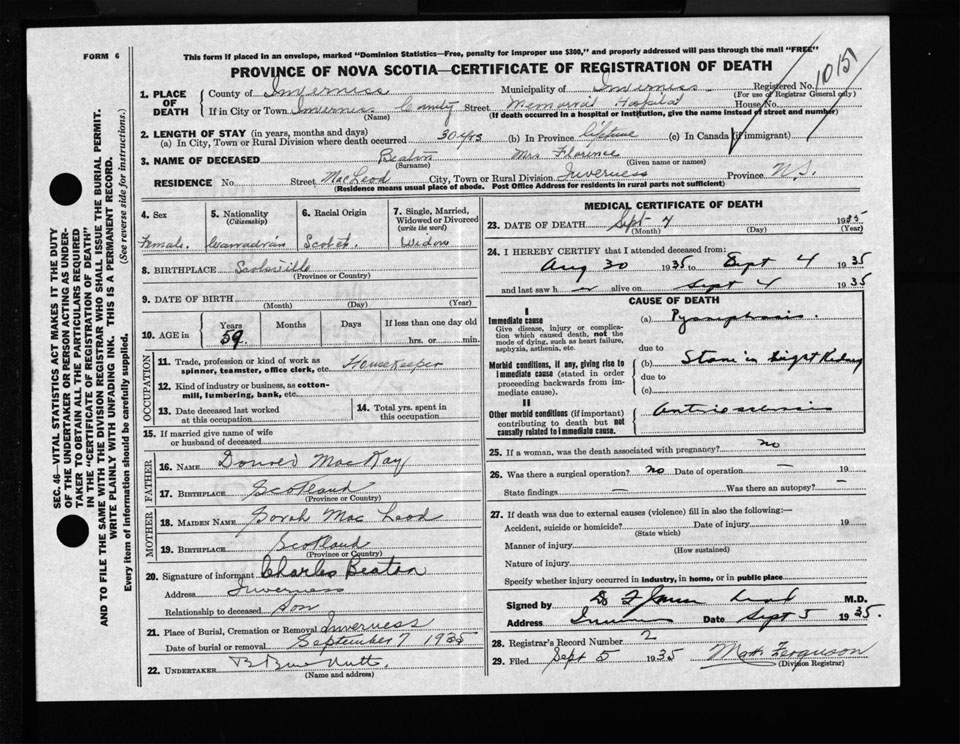 FORM 6
This form if placed in an envelope, marked "Dominion Statistics—Free, penalty for improper use $300," and properly addressed will pass through the mail "FREE"
PROVINCE OF NOVA SCOTIA—CERTIFICATE OF REGISTRATION OF DEATH
1. PLACE OF DEATH
County of Inverness Municipality of Inverness Registered No. 10151
(For use of Registrar General only)
If in City or Town Inverness County Street Memorial Hospital House No.
(Name) (If death occurred in a hospital or institution, give the name instead of street and number)
2. LENGTH OF STAY (in years, months and days)
(a) In City, Town or Rural Division where death occurred 30 yrs (b) In Province lifetime (c) In Canada (if immigrant)
3. NAME OF DECEASED Beaton Mrs Florence
(Surname) (Given name or names)
RESIDENCE No. Street MacLeod City, Town or Rural Division Inverness Province N.S.
(Residence means usual place of abode. Post Office Address for residents in rural parts not sufficient)
4. Sex
Female
5. Nationality
(Citizenship)
Canadian
6. Racial Origin
Scotch
7. Single, Married, Widowed or Divorced
(write the word)
Widow
8. BIRTHPLACE Scotsville
(Province or Country)
9. DATE OF BIRTH
(Month) (Day) (Year)
10. AGE in Years Months Days If less than one day old
59 hrs. or min.
OCCUPATION
11. Trade, profession or kind of work as spinner, teamster, office clerk, etc. Housekeeper
12. Kind of industry or business, as cotton-mill, lumbering, bank, etc.
13. Date deceased last worked at this occupation
14. Total yrs. spent in this occupation
15. If married give name of wife or husband of deceased
FATHER
16. NAME MacKay
17. BIRTHPLACE Scotland
(Province or Country)
MOTHER
18. MAIDEN NAME Sarah MacLeod
19. BIRTHPLACE Scotland
(Province or Country)
20. Signature of informant Charles Beaton
Address Inverness
Relationship to deceased Son
21. Place of Burial, Cremation or Removal Inverness
Date of burial or removal September 7 1935
22. UNDERTAKER
(Name and address)
MEDICAL CERTIFICATE OF DEATH
23. DATE OF DEATH Sept 4 1935
(Month) (Day) (Year)
24. I HEREBY CERTIFY that I attended deceased from:
Aug 30 1935 to Sept 4 1935
and last saw h er alive on Sept 4 1935
CAUSE OF DEATH
I
Immediate cause (a)
Give disease, injury or complication which caused death, not the mode of dying, such as heart failure, asphyxia, asthenia, etc.
due to
Morbid conditions, if any, giving rise to immediate cause (stated in order proceeding backwards from immediate cause).
(b) Stone in Right Kidney
due to
(c)
II
Other morbid conditions (if important) contributing to death but not causally related to immediate cause.
25. If a woman, was the death associated with pregnancy? no
26. Was there a surgical operation? no Date of operation — 19
State findings — Was there an autopsy? —
27. If death was due to external causes (violence) fill in also the following:—
Accident, suicide or homicide? Date of injury 19
(State which)
Manner of injury
(How sustained)
Nature of injury
Specify whether injury occurred in industry, in home, or in public place
Signed by M.D.
Address Date Sept 5 1935.
28. Registrar's Record Number 2
29. Filed Sept 5 1935 Ferguson
(Division Registrar)
SEC. 46—VITAL STATISTICS ACT MAKES IT THE DUTY OF THE UNDERTAKER OR PERSON ACTING AS UNDERTAKER TO OBTAIN ALL THE PARTICULARS REQUIRED IN THE "CERTIFICATE OF REGISTRATION OF DEATH"
AND TO FILE THE SAME WITH THE DIVISION REGISTRAR WHO SHALL ISSUE THE BURIAL PERMIT.
WRITE PLAINLY WITH UNFADING INK. THIS IS A PERMANENT RECORD.
Every item of information should be carefully supplied. (See reverse side for instructions.)